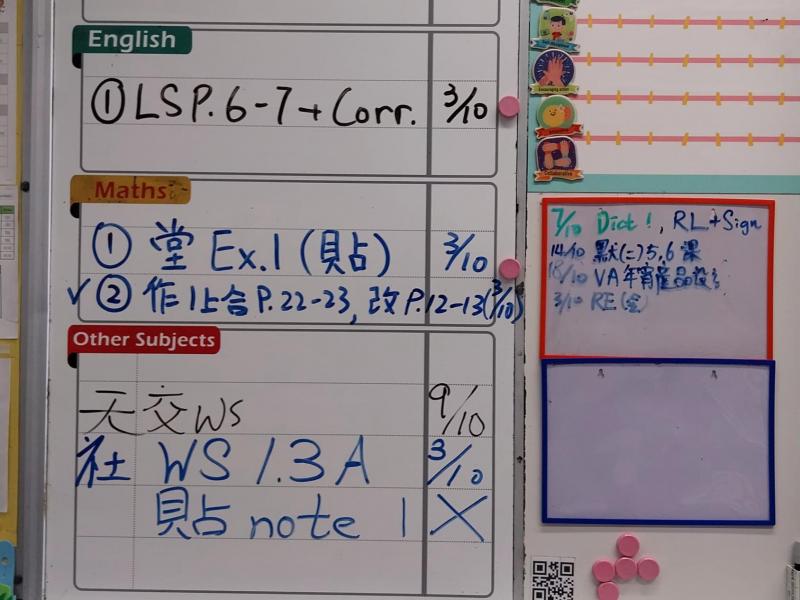 English
① LS P.6-7 + Corr. 3/10
Maths
① 堂 Ex.1 (貼) 3/10
✓ ② 作1上合 P.22-23, 改 P.12-13 (3/10)
Other Subjects
天 交 WS 9/10
社 WS 1.3A 3/10
貼 note 1 X
Encouraging
Collaborative
7/10 Dict 1, RL+Sign
14/10 默(二) 5,6 課
/10 VA 年宵產品設
3/10 RE